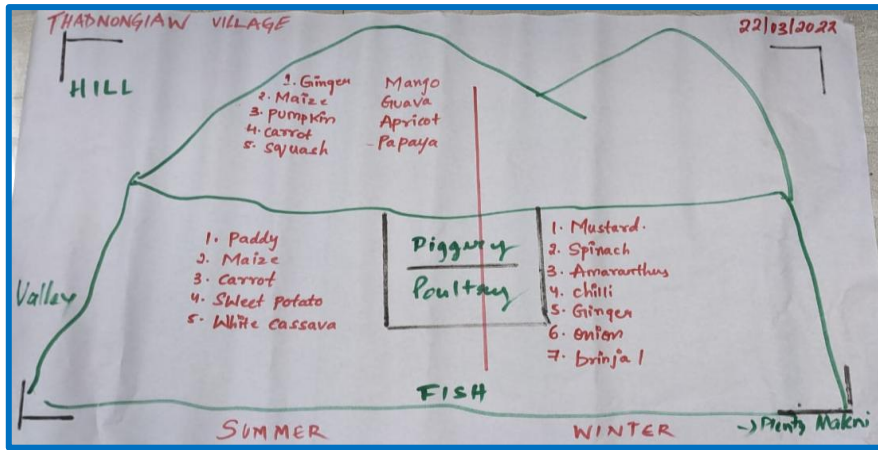 THADNONGIAW VILLAGE
22/03/2022
HILL
1. Ginger Mango
2. Maize Guava
3. Pumpkin Apricot
4. carrot Papaya
5. Squash
Valley
1. Paddy
2. Maize
3. Carrot
4. Sweet potato
5. White cassava
Piggery
Poultry
1. Mustard.
2. Spinach
3. Amaranthus
4. chilli
5. Ginger
6. onion
7. brinjal
FISH
SUMMER
WINTER
→ Plenty Makni